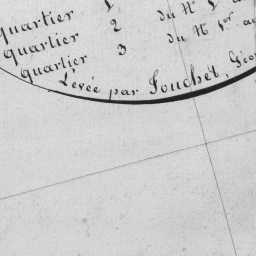 quartier 1 du N°
quartier 2 du N°
quartier 3 du N° 1er au
Levée par Souchet, Géo